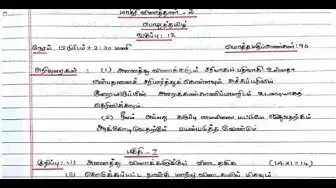 மாதிரி வினாத்தாள் - 2
பொதுத்தமிழ்
வகுப்பு : 12
நேரம் : 15 நிமிடம் + 2.30 மணி மொத்த மதிப்பெண்கள் : 90
அறிவுரைகள் : (1) அனைத்து வினாக்களும் சரியாகப் பதிவாகி உள்ளதா
என்பதனைச் சரிபார்த்துக் கொள்ளவும். அச்சுப்பதிவில்
குறையிருப்பின் அறைக் கண்காணிப்பாளரிடம் உடனடியாகத்
தெரிவிக்கவும்.
(2) நீலம் அல்லது கருப்பு மையினை மட்டுமே எழுதுவதற்கும்
அடிக்கோடிடுவதற்கும் பயன்படுத்த வேண்டும்
பகுதி - I
குறிப்பு : (i) அனைத்து வினாக்களுக்கும் விடையளிக்க (14x1=14)
(ii) கொடுக்கப்பட்ட நான்கு மாற்று விடைகளில் மிகவும்